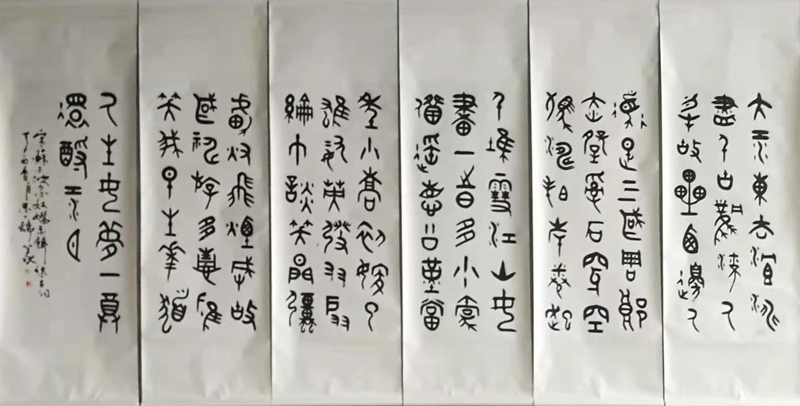 大江東去浪淘
盡千古風流人
物故壘西邊人
道是三國周郎
赤壁亂石穿空
驚濤拍岸卷起
千堆雪江山如
畫一時多少豪
傑遙想公瑾當
年小喬初嫁了
雄姿英發羽扇
綸巾談笑間彊
虜灰飛煙滅故
國神游多情應
笑我早生華髮
人生如夢一尊
還酹江月
宋蘇東坡念奴嬌赤壁懷古詞
丁酉春月